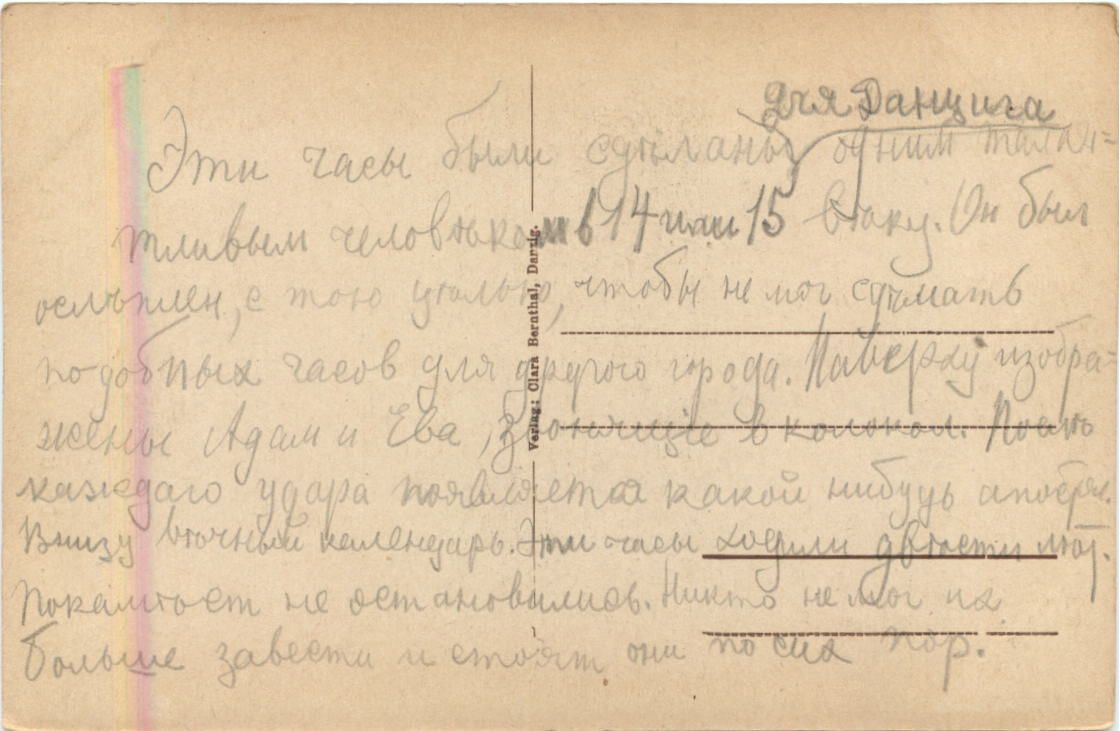 для Данцига
Эти часы были сдѣланы однимъ талан-
тливымъ человѣкомъ в 14 или 15 вѣку. Он был
ослѣплен, с тою цѣлью, чтобы не мог сдѣлать
подобных часов для другого города. Наверху изобра-
жены Адам и Ева, звонящіе в колокол. Послѣ
каждаго удара появляется какой нибудь апостол.
Внизу вѣчный календарь. Эти часы ходили двѣсти лѣт.
пока не остановились. Никто не мог их
больше завести и стоят они по сих пор.
Verlag: Clara Bernthal, Danzig.